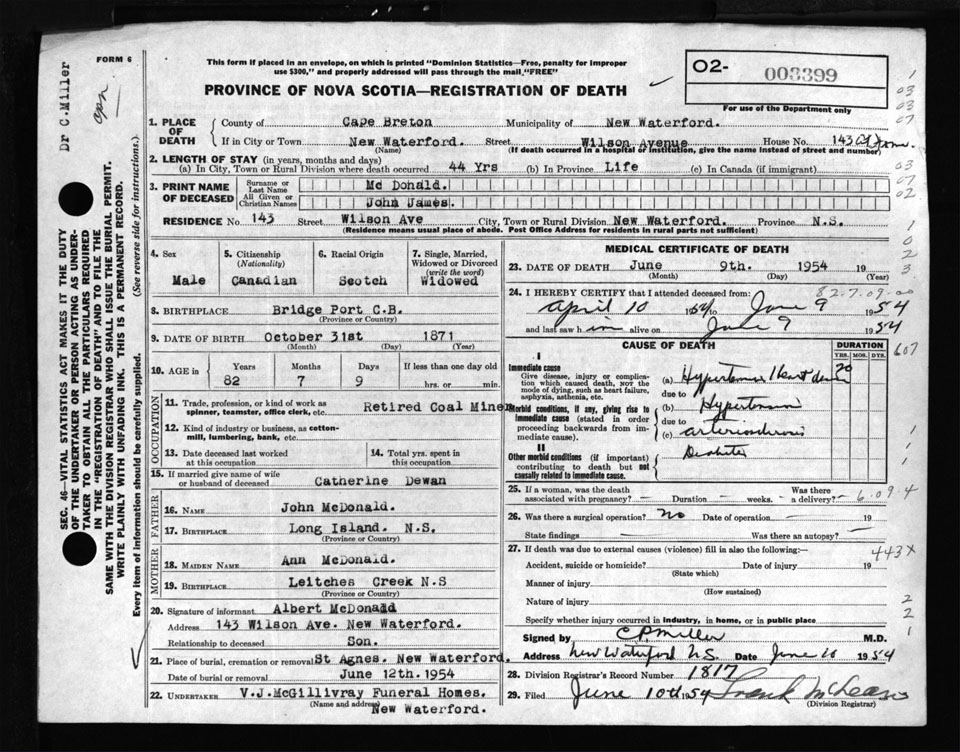 FORM 6
Dr C. Miller
This form if placed in an envelope, on which is printed "Dominion Statistics—Free, penalty for improper
use $300," and properly addressed will pass through the mail "FREE"
PROVINCE OF NOVA SCOTIA—REGISTRATION OF DEATH
O2- 003399
For use of the Department only
SEC. 46—VITAL STATISTICS ACT MAKES IT THE DUTY
OF THE UNDERTAKER OR PERSON ACTING AS UNDER-
TAKER TO OBTAIN ALL THE PARTICULARS REQUIRED
IN THE "REGISTRATION OF DEATH" AND TO FILE THE
SAME WITH THE DIVISION REGISTRAR WHO SHALL ISSUE THE BURIAL PERMIT.
WRITE PLAINLY WITH UNFADING INK. THIS IS A PERMANENT RECORD.
Every item of information should be carefully supplied. (See reverse side for instructions.)
1. PLACE OF DEATH
County of Cape Breton Municipality of New Waterford.
If in City or Town New Waterford. Street Wilson Avenue House No. 143
(Name) (If death occurred in a hospital or institution, give the name instead of street and number)
2. LENGTH OF STAY (in years, months and days)
(a) In City, Town or Rural Division where death occurred 44 Yrs (b) In Province Life (c) In Canada (if immigrant)
3. PRINT NAME OF DECEASED
Surname or Last Name Mc Donald.
All Given or Christian Names John James.
RESIDENCE No. 143 Street Wilson Ave City, Town or Rural Division New Waterford. Province N.S.
(Residence means usual place of abode. Post Office Address for residents in rural parts not sufficient)
4. Sex Male
5. Citizenship (Nationality) Canadian
6. Racial Origin Scotch
7. Single, Married, Widowed or Divorced (write the word) Widowed
8. BIRTHPLACE Bridge Port C.B.
(Province or Country)
9. DATE OF BIRTH October 31st 1871
(Month) (Day) (Year)
10. AGE in Years 82 Months 7 Days 9 If less than one day old hrs. or min.
OCCUPATION
11. Trade, profession, or kind of work as
spinner, teamster, office clerk, etc. Retired Coal Miner
12. Kind of industry or business, as cotton-
mill, lumbering, bank, etc.
13. Date deceased last worked at this occupation
14. Total yrs. spent in this occupation
15. If married give name of wife
or husband of deceased Catherine Dewan
FATHER
16. NAME John McDonald.
17. BIRTHPLACE Long Island. N.S.
(Province or Country)
MOTHER
18. MAIDEN NAME Ann McDonald.
19. BIRTHPLACE Leitches Creek N.S
(Province or Country)
20. Signature of informant Albert McDonald
Address 143 Wilson Ave. New Waterford.
Relationship to deceased Son.
21. Place of burial, cremation or removal St Agnes. New Waterford.
Date of burial or removal June 12th.1954
22. UNDERTAKER V.J.McGillivray Funeral Homes.
(Name and address) New Waterford.
MEDICAL CERTIFICATE OF DEATH
23. DATE OF DEATH June 9th. 1954 19
(Month) (Day) (Year)
82.7.09.00
24. I HEREBY CERTIFY that I attended deceased from:
April 10 1954 to June 9 1954
and last saw him alive on June 9 1954
CAUSE OF DEATH DURATION
YRS. MOS. DYS.
607
I
Immediate cause
Give disease, injury or complica-
tion which caused death, NOT the
mode of dying, such as heart failure,
asphyxia, asthenia, etc.
(a) Hypertensive Heart disease 20
due to
Morbid conditions, if any, giving rise to
immediate cause (stated in order
proceeding backwards from im-
mediate cause).
(b) Hypertension
due to
(c) arteriosclerosis
II
Other morbid conditions (if important)
contributing to death but not
causally related to immediate cause.
Diabetes
25. If a woman, was the death associated with pregnancy? — Duration — weeks. Was there a delivery? —
6.09.4
26. Was there a surgical operation? No Date of operation — 19
State findings — Was there an autopsy? —
27. If death was due to external causes (violence) fill in also the following:—
443X
Accident, suicide or homicide? Date of injury 19
(State which)
Manner of injury
(How sustained)
Nature of injury
Specify whether injury occurred in industry, in home, or in public place
Signed by C P Miller M.D.
Address New Waterford N.S. Date June 10 1954
28. Division Registrar's Record Number 1817
29. Filed June 10th 1954 Frank McLean
(Division Registrar)